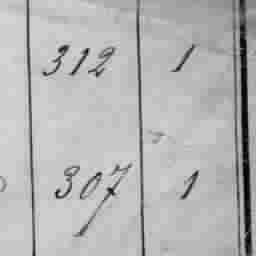 312 1
307 1